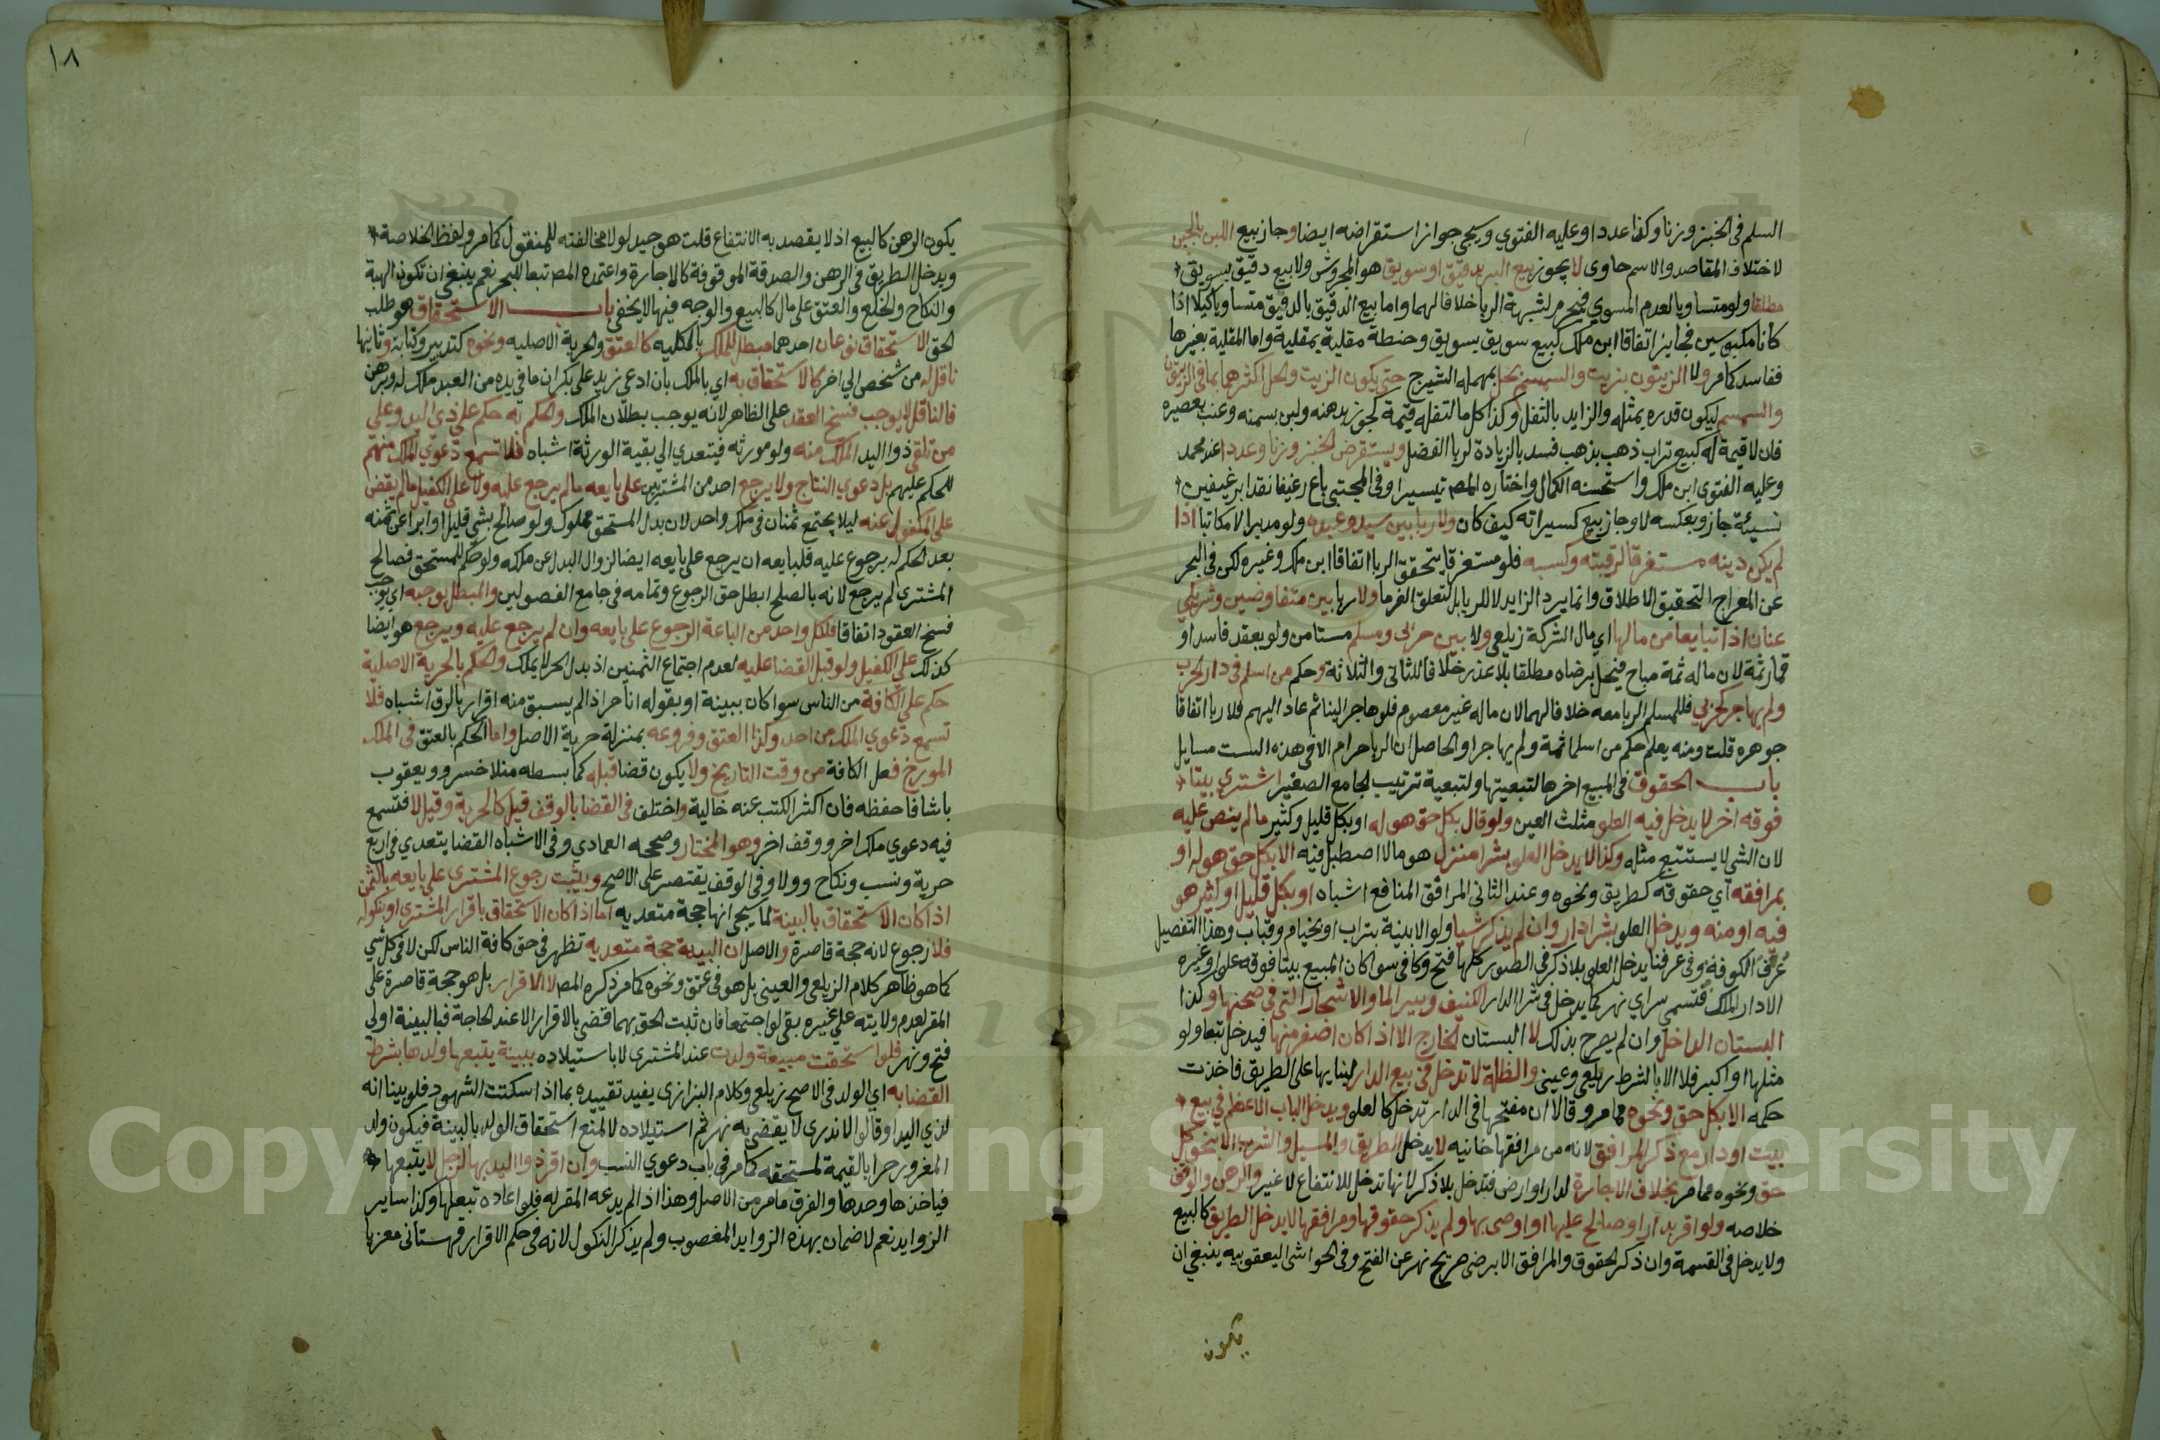 السلم في الخبز وزنا وكذا عددا وعليه الفتوي ويجي جواز استقراضه ايضا وجاز بيع اللبن بالجبن
لاختلاف المقاصد والاسم حاوى لا يجوز بيع البر بدقيق او سويق هو المجروش ولا بيع دقيق بسويق
مطلقا ولو متساويا لعدم المسوي فيحرم لشبهة الربا خلافا لهما واما بيع الدقيق بالدقيق متساويا كيلا اذا
كانا مكبوسين فجايز اتفاقا ابن ملك كبيع سويق بسويق وحنطة مقلية بمقلية واما المقلية بغيرها
ففاسد كما مر ولا الزيتون بزيت والسمسم بحل بمهمله الشيرج حتي يكون الزيت والحل اكثر مما في الزيتون
والسمسم ليكون قدره بمثله والزايد بالثفل وكذا كل ما لثفله قيمة كجوز بدهنه ولبن بسمنه وعنب بعصيره
فان لا قيمة له كبيع تراب ذهب بذهب فسد بالزيادة لربا الفضل ويستقرض الخبز وزنا وعددا عند محمد
وعليه الفتوى ابن ملك واستحسنه الكمال واختاره المصـ تيسيرا وفي المجتبى باع رغيفا نقدا برغيفين
نسيئة جاز وبعكسه لا وجاز بيع كسيراته كيف كان ولا ربا بين سيد وعبده ولو مدبرا لا مكاتبا اذا
لم يكن دينه مستغرقا لرقبته وكسبه فلو مستغرقا يتحقق الربا اتفاقا ابن ملك وغيره لكن في البحر
عن المعراج التحقيق الاطلاق وانما يرد الزايد لا للربا بل لتعلق الغرما ولا ربا بين متفاوضين وشريكي
عنان اذا تبايعا من مالها اي مال الشركة زيلعي ولا بين حربي ومسلم مستامن ولو بعقد فاسد او
قمار ثمة لان ماله ثمة مباح فيحل برضاه مطلقا بلا عذر خلافا للثاني والثلاثة وحكم من اسلم في دار الحرب
ولم يهاجر كحربي فللمسلم الربا معه خلافا لهما لان ماله غير معصوم فلو هاجر الينا ثم عاد اليهم فلا ربا اتفاقا
جوهره قلت ومنه يعلم حكم من اسلما ثمة ولم يهاجرا والحاصل ان الربا حرام الا في هذه الست مسايل
باب الحقوق في المبيع اخرها لتبعيتها ولتبعية ترتيب الجامع الصغير اشتري بيتا
فوقه اخر لا يدخل فيه العلو مثلث العين ولو قال بكل حق هو له او بكل قليل وكثير ما لم ينص عليه
لان الشي لا يستتبع مثله وكذا لا يدخل العلو بشرا منزل هو ما لا اصطبل فيه الا بكل حق هو له او
بمرافقه اي حقوقه كطريق ونحوه وعند الثاني المرافق المنافع اشباه او بكل قليل او كثير هو
فيه او منه ويدخل العلو بشرا دار وان لم يذكر شيا ولو الابنية بتراب او بخيام وقباب وهذا التفصيل
عرف الكوفة وفي عرفنا يدخل العلو بلا ذكر في الصور كلها فتح وكافي سوا كان المبيع بيتا فوقه علو او غيره
الا دار الملك فتسمي سراي نهر كما يدخل في شرا الدار الكنيف وبير الما والاشجار التي في صحنها وكذا
البستان الداخل وان لم يصرح بذلك لا البستان الخارج الا اذا كان اصغر منها فيدخل تبعا ولو
مثلها او اكبر فلا الا بالشرط زيلعي وعيني والظلة لا تدخل في بيع الدار لبنايها على الطريق فاخذت
حكمه الا بكل حق ونحوه مما مر وقالا ان مفتحها في الدار تدخل كالعلو ويدخل الباب الاعظم في بيع
بيت او دار مع ذكر المرافق لانه من مرافقها خانيه لا يدخل الطريق والمسيل والشرب الا بنحو كل
حق ونحوه مما مر بخلاف الاجارة لدار او ارض فتدخل بلا ذكر لانها تدخل للانتفاع لا غير والرهن والوقف
خلاصه ولو اقر بدار او صالح عليها او اوصى بها ولم يذكر حقوقها ومرافقها لا يدخل الطريق كالبيع
ولا يدخل في القسمة وان ذكر الحقوق والمرافق الا برضى صريح نهر عن الفتح وفي الحواشي اليعقوبيه ينبغي ان
يكون
١٨
يكون الرهن كالبيع اذ لا يقصد به الانتفاع قلت هو جيد لولا مخالفته للمنقول كما مر ولفظ الخلاصة
ويدخل الطريق في الرهن والصدقة الموقوفة كالاجارة واعتمده المصـ تبعا للبحر نعم ينبغي ان تكون الهبة
والنكاح والخلع والعتق على مال كالبيع والوجه فيها لا يخفي باب الاستحقاق هو طلب
الحق الاستحقاق نوعان احدهما مبطل للملك بالكليه كالعتق والحرية الاصليه ونحوه كتدبير وكتابة وثانيها
ناقل له من شخص الي اخر كالاستحقاق به اي بالملك بان ادعي زيد على بكر ان ما في يده من العبد ملك له وبرهن
فالناقل لا يوجب فسخ العقد على الظاهر لانه يوجب بطلان الملك والحكم به حكم علي ذي اليد وعلي
من تلقي ذو اليد الملك منه ولو مورثه فيتعدي الي بقية الورثة اشباه فلا تسمع دعوي الملك منهم
للحكم عليهم بل دعوي النتاج ولا يرجع احد من المشترين علي بايعه ما لم يرجع عليه ولا على الكفيل ما لم يقض
على المكفول عنه ليلا يجتمع ثمنان في ملك واحد لان بدل المستحق مملوك ولو صالح بشي قليل او ابرا عن ثمنه
بعد الحكم له برجوع عليه فلبايعه ان يرجع على بايعه ايضا لزوال البدل عن ملكه ولو حكم للمستحق فصالح
المشتري لم يرجع لانه بالصلح ابطل حق الرجوع وتمامه في جامع الفصولين والمبطل يوجبه اي يوجب
فسخ العقود اتفاقا فلكل واحد من الباعة الرجوع علي بايعه وان لم يرجع عليه ويرجع هو ايضا
كذلك علي الكفيل ولو قبل القضا عليه لعدم اجتماع الثمنين اذ بدل الحر لا يملك والحكم بالحرية الاصلية
حكم علي الكافة من الناس سوا كان ببينة او بقوله انا حر اذا لم يسبق منه اقرار بالرق اشباه فلا
تسمع دعوي الملك من احد وكذا العتق وفروعه بمنزلة حرية الاصل واما الحكم بالعتق في الملك
المورخ فعل الكافة من وقت التاريخ ولا يكون قضا قبله كما بسطه منلا خسرو ويعقوب
باشا فاحفظه فان اكثر الكتب عنه خالية واختلف في القضا بالوقف قيل كالحرية وقيل لا فتسمع
فيه دعوي ملك اخر ووقف اخر وهو المختار وصححه العمادي وفي الاشباه القضا يتعدي في اربع
حرية ونسب ونكاح وولا وفي الوقف يقتصر على الاصح ويثبت رجوع المشتري علي بايعه بالثمن
اذا كان الاستحقاق بالبينة لما يجي انها حجة متعديه اما اذا كان الاستحقاق باقرار المشتري او نكوله
فلا رجوع لانه حجة قاصرة والاصل ان البينة حجة متعديه تظهر في حق كافة الناس لكن لا في كل شي
كما هو ظاهر كلام الزيلعي والعيني بل هو في عتق ونحوه كما مر ذكره المصـ لا الاقرار بل هو حجة قاصرة على
المقر لعدم ولايته علي غيره بقي لو اجتمعا فان ثبت الحق بهما قضي بالاقرار الا عند الحاجة فبالبينة اولي
فتح ونهر فلو استحقت مبيعة ولدت عند المشتري لا باستيلاده ببينة يتبعها ولدها بشرط
القضا به اي الولد في الاصح زيلعي وكلام البزازي يفيد تقييده بما اذا سكتت الشهود فلو بينا انه
لذي اليد او قالوا لا ندري لا يقضي به نهر ثم استيلاده لا يمنع استحقاق الولد بالبينة فيكون ولد
المغرور حرا بالقيمة لمستحقه كما مر في باب دعوي النسب وان اقر ذو اليد بها لرجل لا يتبعها
فياخذها وحدها والفرق ما مر من الاصل وهذا اذا لم يدعه المقر له فلو ادعاه تبعها وكذا ساير
الزوايد نعم لا ضمان بهذه الزوايد المغصوب ولم يذكر النكول لانه في حكم الاقرار قهستاني معزيا
Copyright © King Saud University
1957